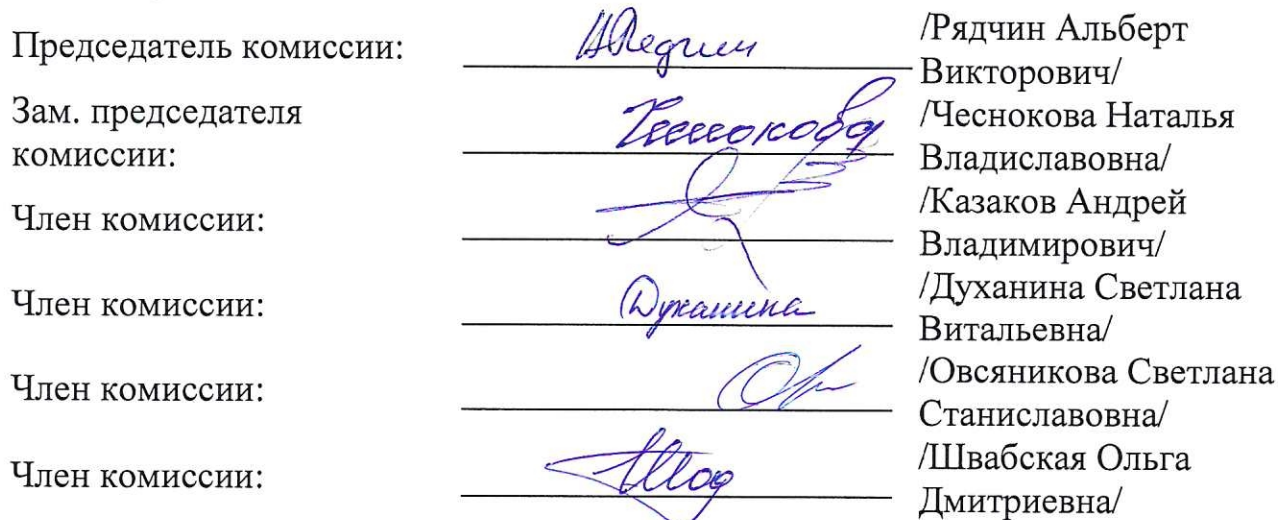 Председатель комиссии: /Рядчин Альберт
Викторович/
Зам. председателя /Чеснокова Наталья
комиссии: Владиславовна/
Член комиссии: /Казаков Андрей
Владимирович/
Член комиссии: Духанина /Духанина Светлана
Витальевна/
Член комиссии: /Овсяникова Светлана
Станиславовна/
Член комиссии: /Швабская Ольга
Дмитриевна/